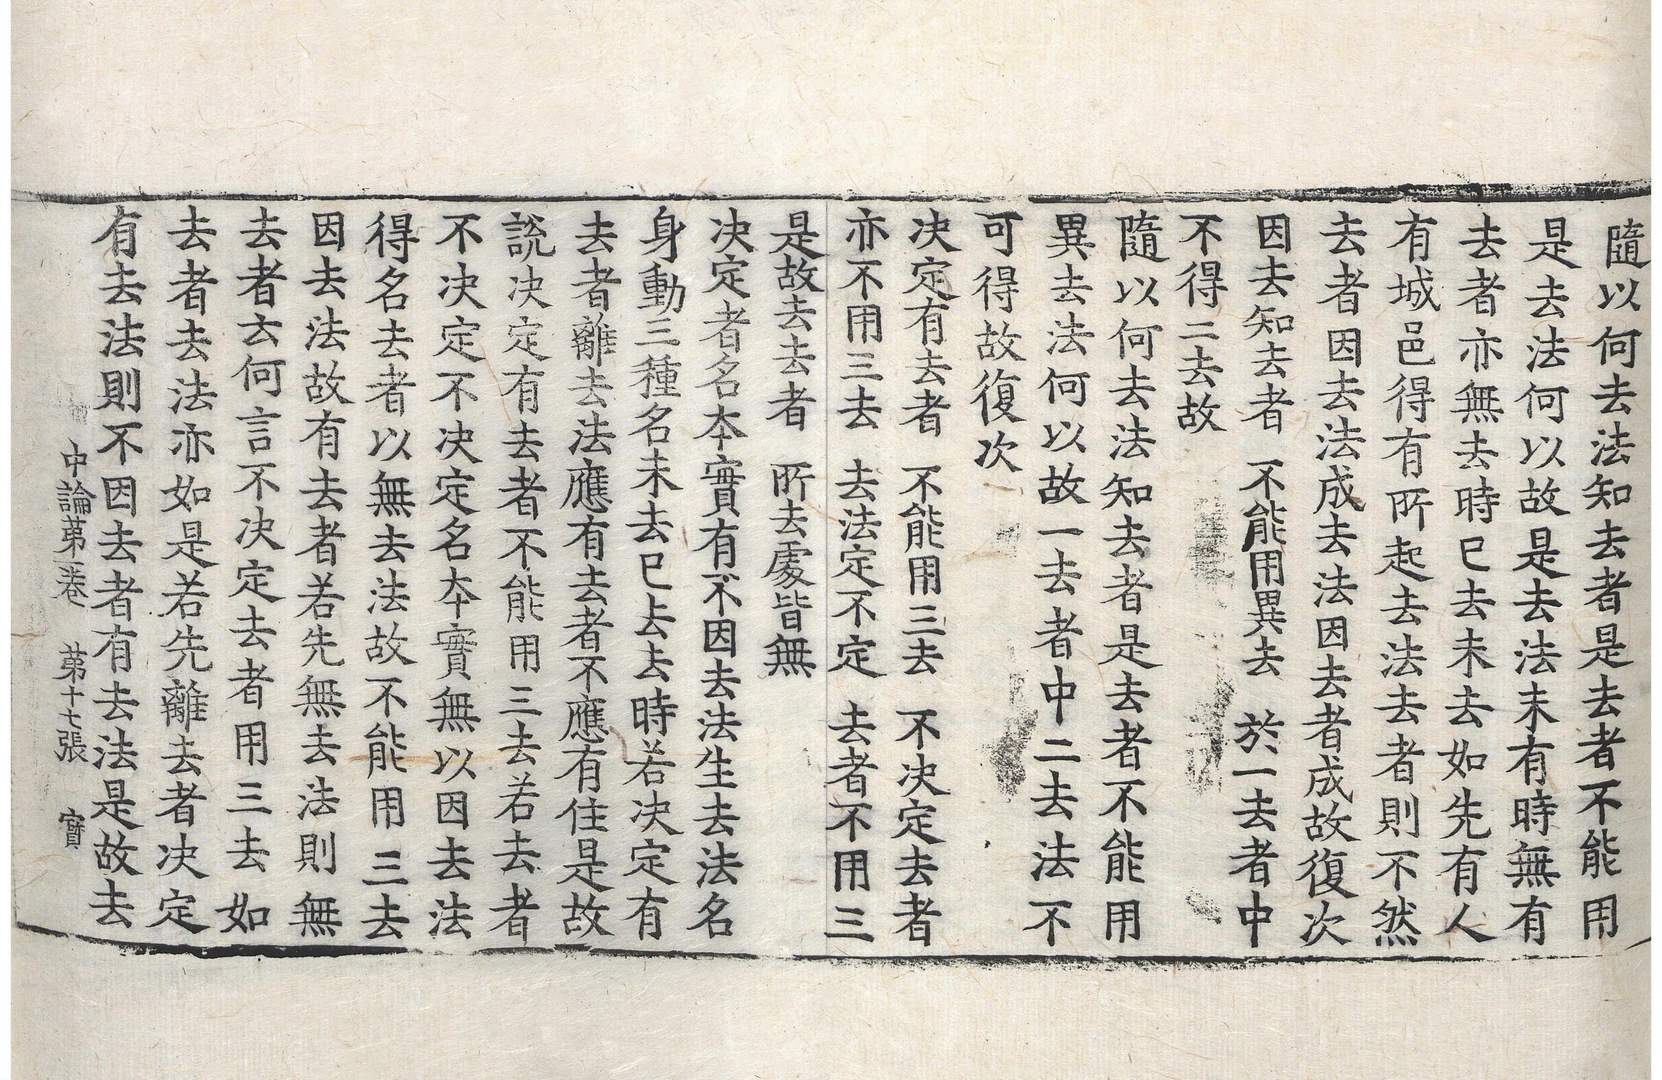 隨以何去法知去者是去者不能用
是去法何以故是去法未有時無有
去者亦無去時已去未去如先有人
有城邑得有所起去法去者則不然
去者因去法成去法因去者成故復次
因去知去者 不能用異去 於一去者中
不得二去故
隨以何去法知去者是去者不能用
異去法何以故一去者中二去法不
可得故復次
决定有去者 不能用三去 不决定去者
亦不用三去 去法定不定 去者不用三
是故去去者 所去處皆無
决定者名本實有不因去法生去法名
身動三種名未去已去去時若决定有
去者離去法應有去者不應有住是故
說决定有去者不能用三去若去者
不决定不决定名本實無以因去法
得名去者以無去法故不能用三去
因去法故有去者若先無去法則無
去者云何言不决定去者用三去如
去者去法亦如是若先離去者决定
有去法則不因去者有去法是故去
中論第一卷 第十七張 實